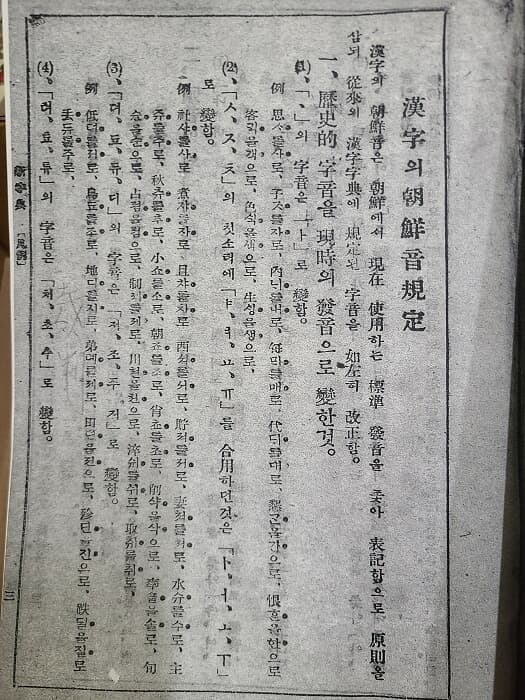 漢字의 朝鮮音規定
漢字의 朝鮮音은 朝鮮에서 現在 使用하는 標準 發音을 좇아 表記함으로 原則을
삼되 從來의 漢字字典에 規定된 字音을 如左히 改正함。
一、歷史的 字音을 現時의 發音으로 變한것。
(1)、「ㆍ」의 字音은 「ㅏ」로 變함。
例 思ᄉᆞ를사로、子ᄌᆞ를자로、內ᄂᆡ를내로、每ᄆᆡ를매로、代ᄃᆡ를대로、懇ᄀᆞᆫ을간으로、恨ᄒᆞᆫ을한으로
客ᄀᆡᆨ을객으로、色ᄉᆡᆨ을색으로、生ᄉᆡᆼ을생으로、
(2)、「ㅅ、ㅈ、ㅊ」의 첫소리에 「ㅑ、ㅕ、ㅛ、ㅠ」를 合用하던것은 「ㅏ、ㅓ、ㅗ、ㅜ」
로 變함。
例 社샤를사로、煮쟈를자로、且챠를차로、西셔를서로、貯져를저로、妻쳐를처로、水슈를수로、主
쥬를주로、秋츄를추로、小쇼를소로、朝죠를조로、肖쵸를초로、削샥을삭으로、率슐을솔로、旬
슌을순으로、占졈을점으로、制졔를제로、川쳔을천으로、取츄ㅣ를취로、
(3)、「뎌、됴、듀、디」의 字音은 「저、조、주、지」로 變함。
例 低뎌를저로、鳥됴를조로、地디를지로、弟뎨를제로、田뎐을전으로、珍딘을진으로、跌딜을질로
(4)、「텨、툐、튜」의 字音은 「처、초、추」로 變함。
新字典 「凡例」
三